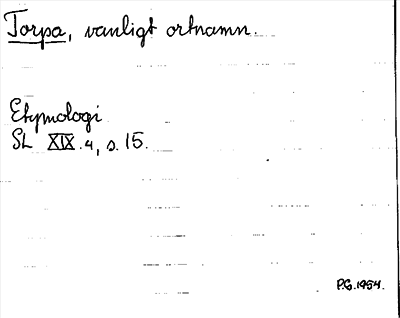 Torpa, vanligt ortnamn.
Etymologi
SL XIX.4, s. 15.
P.G. 1954.